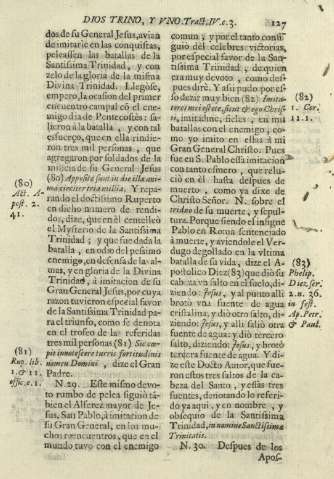 DIOS TRINO, Y VNO. Tract. IV. c. 3. 127
dos de su General Jesus, avian
de imitarle en las conquistas,
peleassen las batallas de la
Santissima Trinidad, y con
zelo de la gloria de la misma
Divina Trinidad. Llegòse,
empero, la ocasion del primer
encuentro campal cõ el ene-
migo dia de Pentecostès: sa-
lieron à la batalla, y con tal
esfuerço, que en ella rindie-
ron tres mil personas, que
agregaron por soldados de la
milicia de su General Jesus
(80) Apposita sunt in die illa ani-
mæ circiter tria millia. Y repa-
rando el doctissimo Ruperto
en dicho numero de rendi-
dos, dize, que en èl centelleò
el Mysterio de la Santissima
Trinidad; y que fue dada la
batalla, en odio del pesimo
enemigo, en defensa de las al-
mas, y en gloria de la Divina
Trinidad, à imitacion de su
Gran General Jesus, por cuya
razon tuvieron especial favor
de la Santissima Trinidad pa-
ra el triumfo, como se denota
en el trofeo de las referidas
tres mil personas (81) Sic cœ-
pit innotescere turris fortitudinis
nomen Domini, dize el Gran
Padre.
N. 29. Este mismo devo-
to rumbo de pelea siguiò tã-
bien el Alferez mayor de Je-
sus, San Pablo, à imitacion de
su Gran General, en los mu-
chos rencuentros, que en el
mundo tuvo con el enemigo
(80)
Act. A-
post. 2.
41.
(81)
Rup. lib.
1. & 11.
offic. c. 1.
comun; y por el tanto consi-
guiò del celebres victorias,
por especial favor de la San-
tissima Trinidad, de quien
era muy devoto, como des-
pues dirè. Y assi pudo por es-
so dezir muy bien (82) Imita-
tores mei estote, sicut & ego Chris-
ti, imitadme, fieles, en mis
batallas con el enemigo, co-
mo yo imito en ellas à mi
Gran General Christo. Pues
fue en S. Pablo essa imitacion
con tanto esmero, que relu-
ciò en èl hasta despues de
muerto, como ya dixe de
Christo Señor. N. sobre el
triduo de su muerte, y sepul-
tura. Porque siendo el insigne
Pablo en Roma sentenciado
à muerte, y aviendole el Ver-
dugo degollado en la vltima
batalla de su vida, dize el A-
postolico Diez (83) que diò su
cabeza vn salto en el suelo, di-
ziendo: Jesus, y al punto alli
brotò vna fuente de agua
cristalina; y diò otro salto, di-
ziendo: Jesus, y alli saliò otra
fuente de agua; y diò tercero
salto, diziendo: Jesus, y brotò
tercera fuente de agua. Y di-
ze este Docto Autor, que fue-
ron estos tres saltos de la ca-
beza del Santo, y estas tres
fuentes, denotando lo referi-
do ya aqui, y en nombre, y
obsequio de la Santissima
Trinidad, in nomine Sanctissimæ
Trinitatis.
N. 30. Despues de los
Apos-
(82)
1. Cor.
11. 1.
(83)
Phelip.
Diez, ser.
2. n. 26.
in fest.
Ap. Petr.
& Paul.